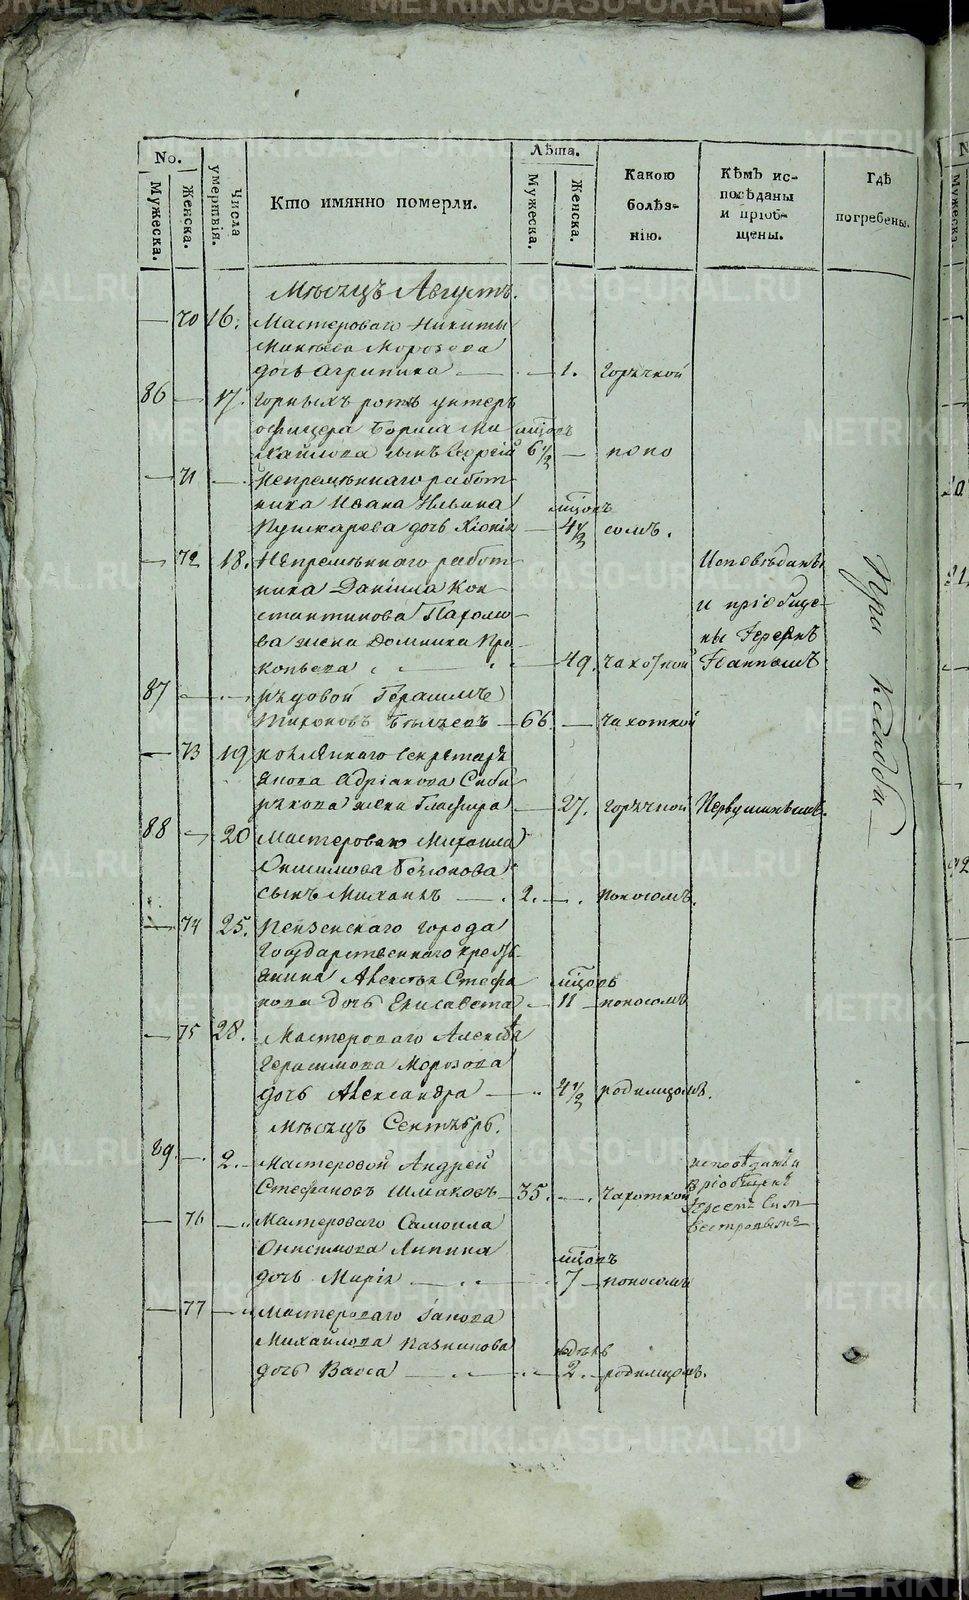 No.
Мужеска.
Женска.
Числа умертвія.
Кто имянно померли.
Лѣта.
Мужеска.
Женска.
Какою болѣз-
нію.
Кѣмъ ис-
повѣданы
и пріоб-
щены.
Гдѣ
погребены.
Мѣсяцъ Августъ.
— 70 16. Мастероваго Никиты
Морозова
дочь Агрипина — 1. Горячкой
86 — 17. Горныхъ ротъ унтеръ
офицера Бориса Ми
хайлова сынъ Георгій мѣсяцовъ 6 1/2 —
— 71 — Непремѣннаго работ
ника Ивана Ильина
Пушкарева дочь Хіонія — мѣсяцовъ 4 1/2
— 72 18. Непремѣннаго работ
ника Даніила Кон
стантинова Пахомо
ва жена Домника Про
копьева — 49. Чахоткой
Исповѣданы
и пріобще
ны Іереемъ
При церкви
87 — Рядовой Герасимъ
66. — Чахоткой
— 73 19 Секретаря
Адріанова Сиби
рякова жена Глафира — 27. Горячкой
88 — 20 Мастероваго Михаила
сынъ Михаилъ — 2. — Поносомъ.
— 74 25. Пензенскаго города
Государственнаго крестья
нина Алексѣя Стефа
нова дочь Елисавета — мѣсяцовъ 11 поносомъ
— 75 28. Мастероваго Алексѣя
Герасимова Морозова
дочь Александра — 4 1/2 родимцомъ.
Мѣсяцъ Сентябрь.
89. — 2. Мастеровой Андрей
Стефановъ Шмаковъ 35. — Чахоткой
исповѣданъ и
пріобщенъ
Іереемъ Силь
вестровымъ
— 76 — Мастероваго Самоила
Онисимова Липина
дочь Марія — мѣсяцовъ 7 поносомъ
— 77 — Мастероваго
Михайлова Казанцова
дочь Васса — 2. родимцомъ.
METRIKI.GASO-URAL.RU